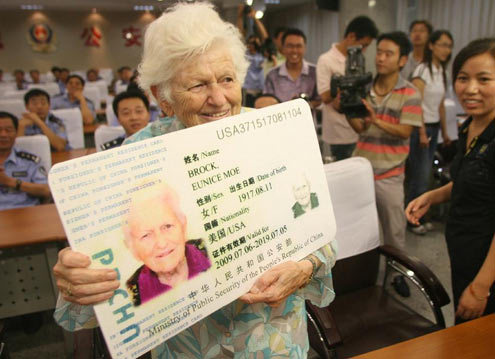 USA371517081104
姓名/Name
BROCK,
EUNICE MOE
性别/Sex 出生日期/Date of birth
女/F 1917.08.11
国籍/Nationality
美国/USA
证件有效期限/Valid for
2009.07.06-2019.07.05
中华人民共和国公安部
Ministry of Public Security of the People's Republic of China